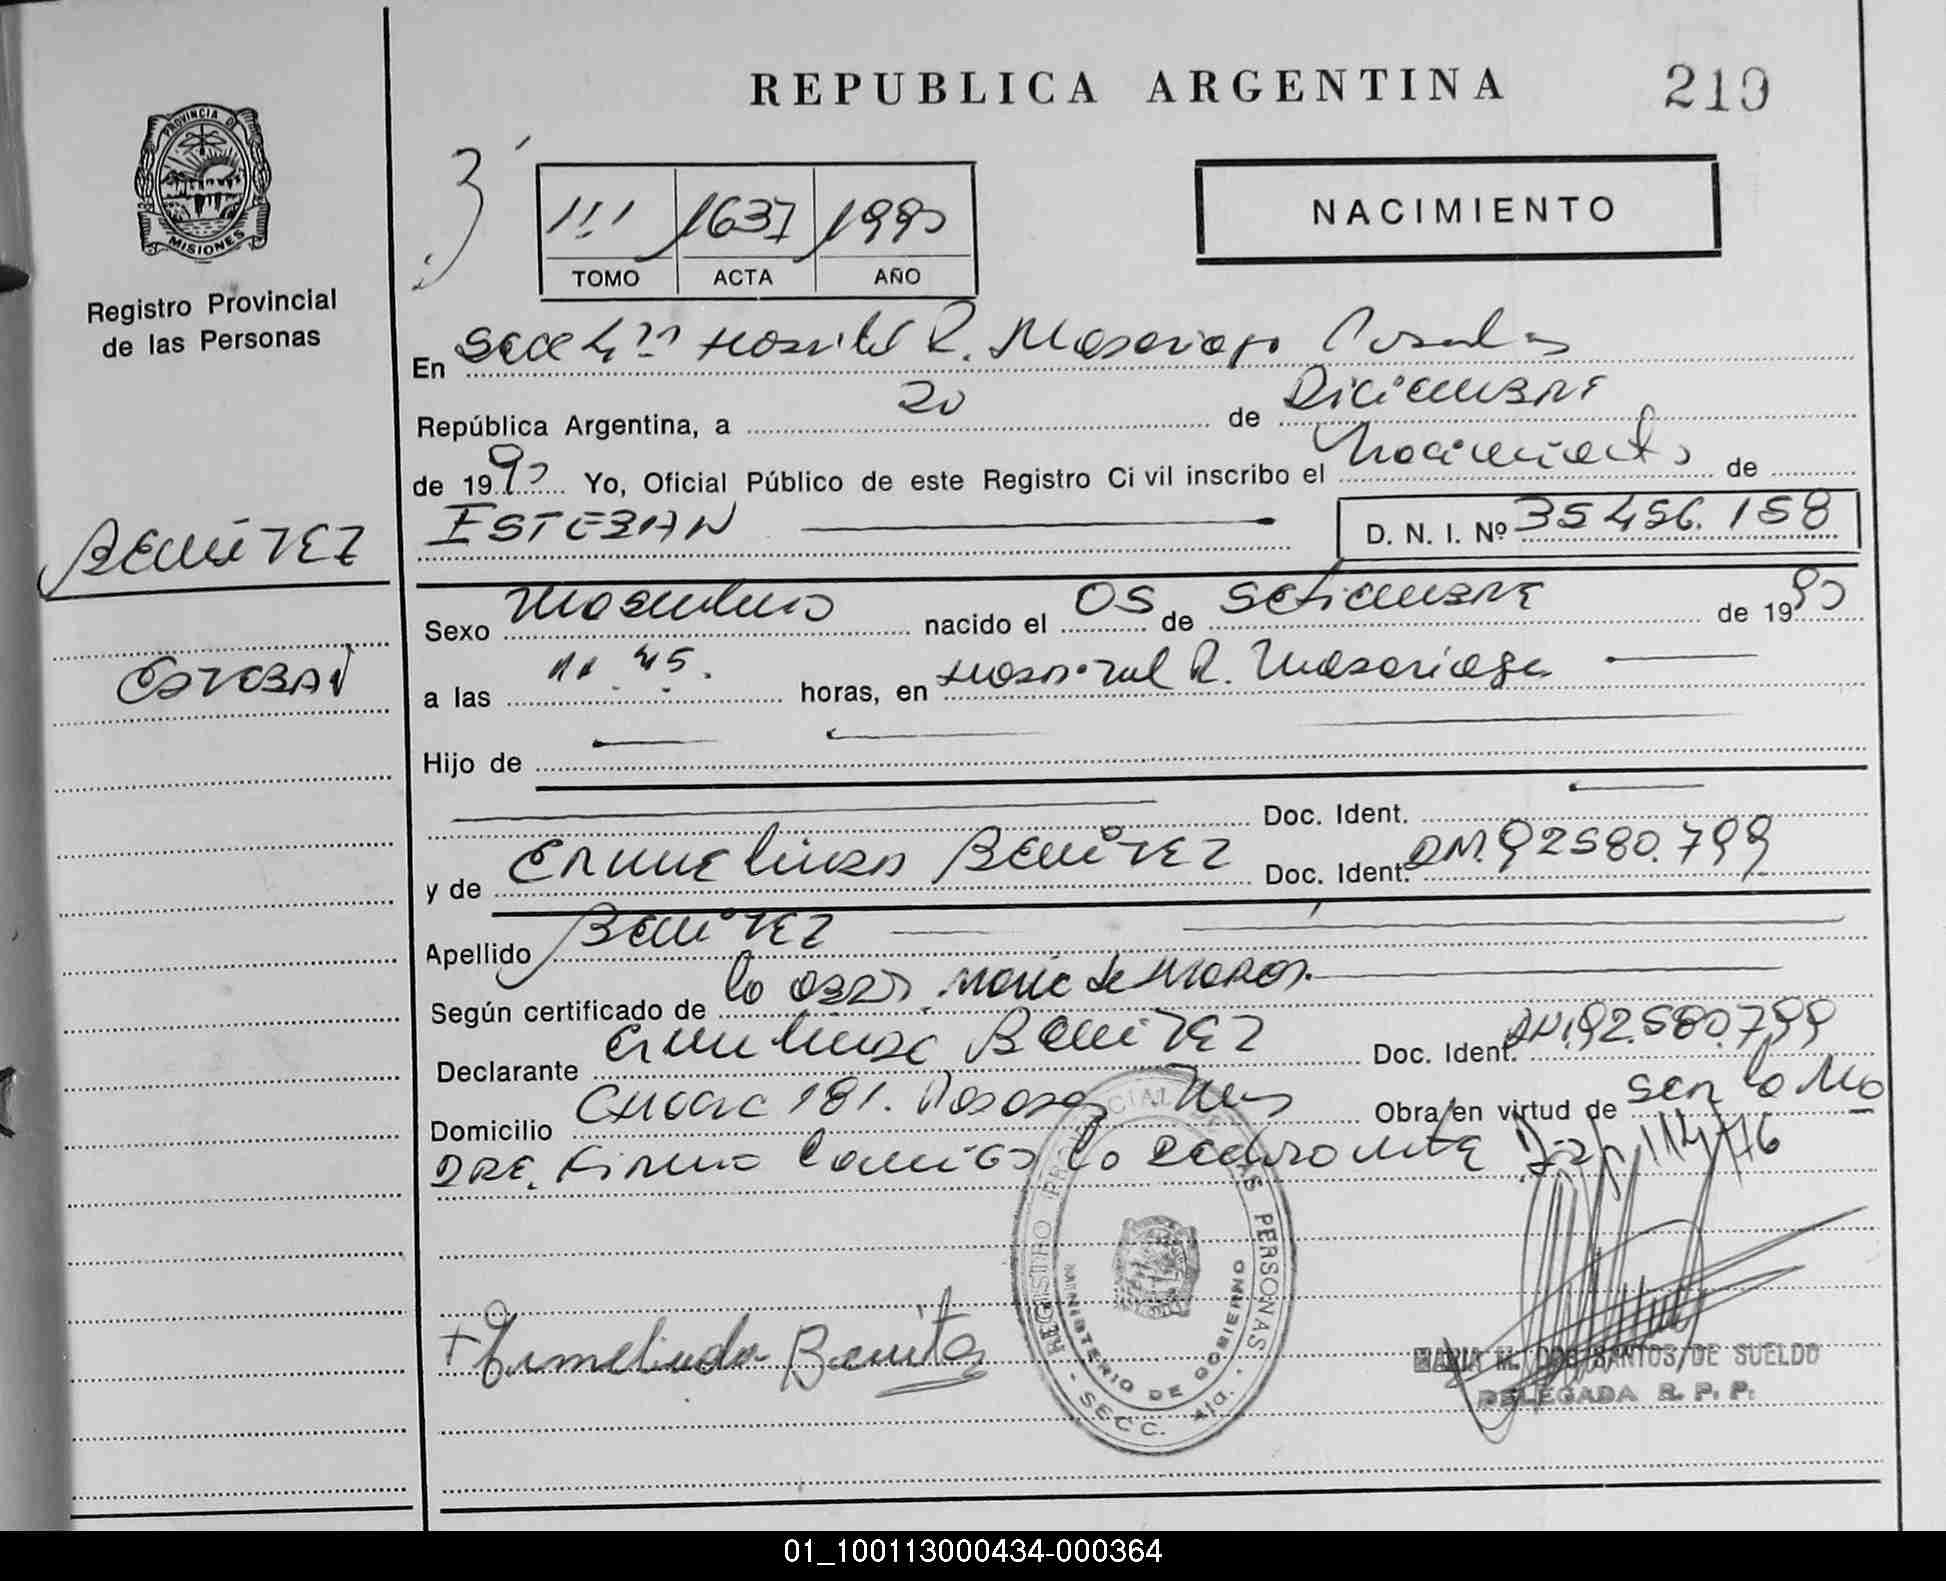 REPUBLICA ARGENTINA
219
PROVINCIA DE
MISIONES
Registro Provincial
de las Personas
3
III 1637 1990
TOMO ACTA AÑO
NACIMIENTO
En Secc 4ta Hospital R. Madariaga Posadas
República Argentina, a 20 de Diciembre
de 1990 Yo, Oficial Público de este Registro Civil inscribo el Nacimiento de
BENÍTEZ
ESTEBAN D. N. I. Nº 35.456.158
Sexo Masculino nacido el 05 de Setiembre de 1990
ESTEBAN
a las 11.45. horas, en Hospital R. Madariaga
Hijo de
Doc. Ident.
y de Ermelinda BENÍTEZ Doc. Ident. DNI. 92580.799
Apellido BENÍTEZ
Según certificado de la Obst.
Declarante Ermelinda BENÍTEZ Doc. Ident. DNI. 92.580.799
Domicilio 181. Posadas Mnes Obra en virtud de ser la Ma
DRE. Firma la declarante
+ Ermelinda Benitez
REGISTRO PROVINCIAL DE LAS PERSONAS
MINISTERIO DE GOBIERNO
- SECC. 4ta. -
MARIA M. DOS SANTOS DE SUELDO
DELEGADA R. P. P.
01_100113000434-000364